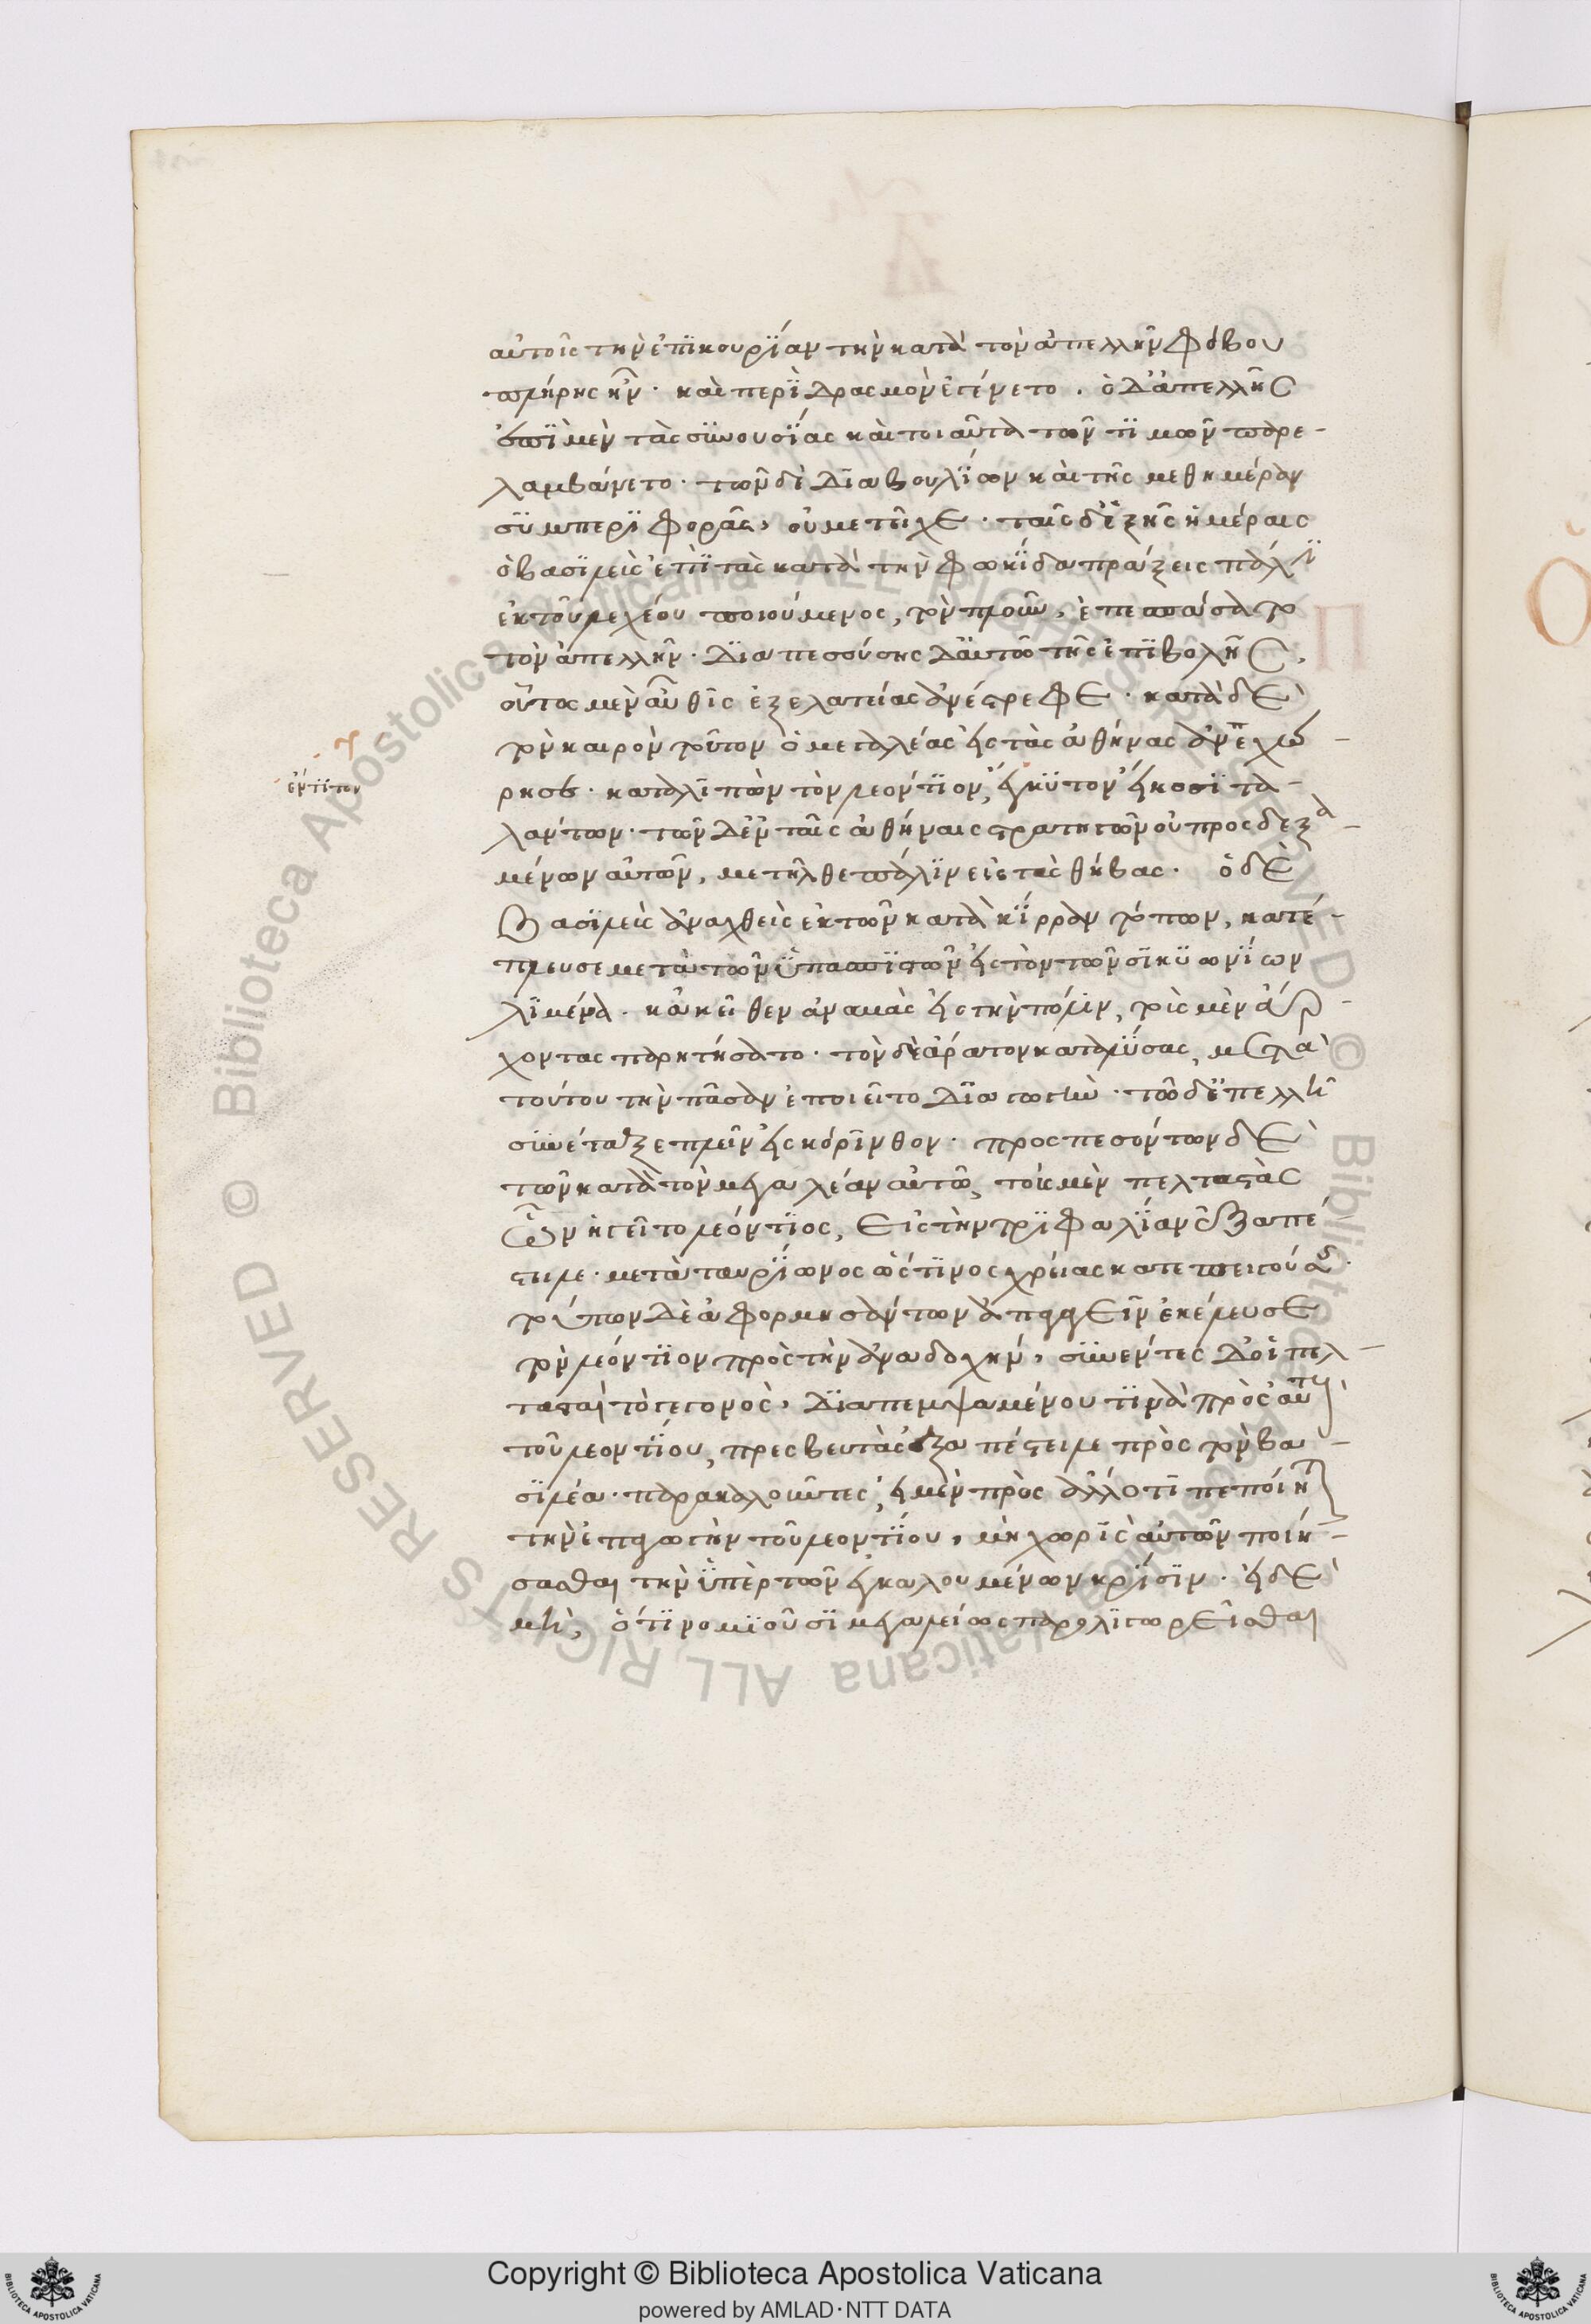 αὐτοῖς τὴν ἐπϊκουρΐαν τὴν κατὰ τὸν ἀπελλῆν φόβου
πλήρης ἦν· καὶ περῒ δρασμὸν ἐγένετο. ὁ δ' ἀπελλῆς
ἐπῒ μὲν τὰς σϋνουσΐας καὶ τοιαῦτα τῶν τϊμῶν παρε-
λαμβάνετο· τῶν δὲ διαβουλΐων καὶ τῆς μεθημέραν
σϋμπερϊφορᾶς, οὐ μετεῖχε· ταῖς δ' ἑξῆς ἡμέραις
ὁ βασϊλεὺς ἐπῒ τὰς κατὰ τὴν φωκΐδα πράξεις πάλϊ
ἐκ τοῦ λεχέου ποιούμενος, τὸν πλοῦν, ἐπεσπάσατο
τὸν ἀπελλῆν· δϊαπεσούσης δ' αὐτῶ τῆς ἐπϊβολῆς,
οὗτος μὲν αὖθις ἐξ ἐλατείας ἀνέστρεφε· κατὰ δὲ
τὸν καιρὸν τοῦτον ὁ μεγαλέας εἰς τὰς ἀθήνας ἀπεχώ-
ρησε· καταλϊπὼν τὸν λεόντϊον, ἐγκϋτον εἴκοσϊ τα-
λάντων· τῶν δ' ἐν ταῖς ἀθήναις στρατηγῶν οὐ προσδεξα-
μένων αὐτῶν, μετῆλθε πάλϊν εἰς τὰς θήβας· ὁ δὲ
βασϊλεὺς ἀναχθεὶς ἐκ τῶν κατὰ κΐρραν τόπων, κατέ-
πλευσε μετὰ τῶν ὑπασπϊστῶν εἰς τὸν τῶν σϊκϋωνΐων
λϊμένα· κἀκεῖθεν ἀναβὰς εἰς τὴν πόλϊν, τοὺς μὲν ἄρ-
χοντας παρητήσατο· τὸν δὲ ἄρατον καταλΰσας, μετὰ
τούτου τὴν πᾶσαν ἐποιεῖτο δϊαγωγὴν· τῶ δ' ἀπελλῆ
σϋνέταξε πλεῖν εἰς κόρϊνθον· προσπεσόντων δὲ
τῶν κατὰ τὸν μεγαλέαν αὐτῶ, τοὺς μὲν πελταστὰς
ὧν ἡγεῖτο λεόντϊος, εἰς τὴν τρϊφυλΐαν ἐξαπέ-
στειλε· μετὰ ταυρΐωνος ὥς τϊνος χρείας κατεπειγούσ·
τούτων δὲ ἀφορμησάντων ἀπάγειν ἐκέλευσε
τὸν λεόντϊον πρὸς τὴν ἀναδοχὴν, σϋνέντες δ' οἱ πελ-
τασταὶ τὸ γεγονὸς, δϊαπεμψαμένου τϊνὰ πρὸς αὐτ
τοῦ λεοντΐου, πρεσβευτὰς ἐξαπέστειλε πρὸς τὸν βα-
σϊλέα· παρακαλοῦντες, εἰ μὲν πρὸς ἄλλο τι πεποίη
τὴν ἐπαγωγὴν τοῦ λεοντΐου, μὴ χωρῒς αὐτῶν ποιή-
σασθαι τὴν ὑπὲρ τῶν ἐγκαλουμένων κρΐσϊν· εἰ δὲ
μὴ, ὅτϊ νομϊοῦσϊ μεγαλείως παρολϊγωρεῖσθαι
ἐγγΰων